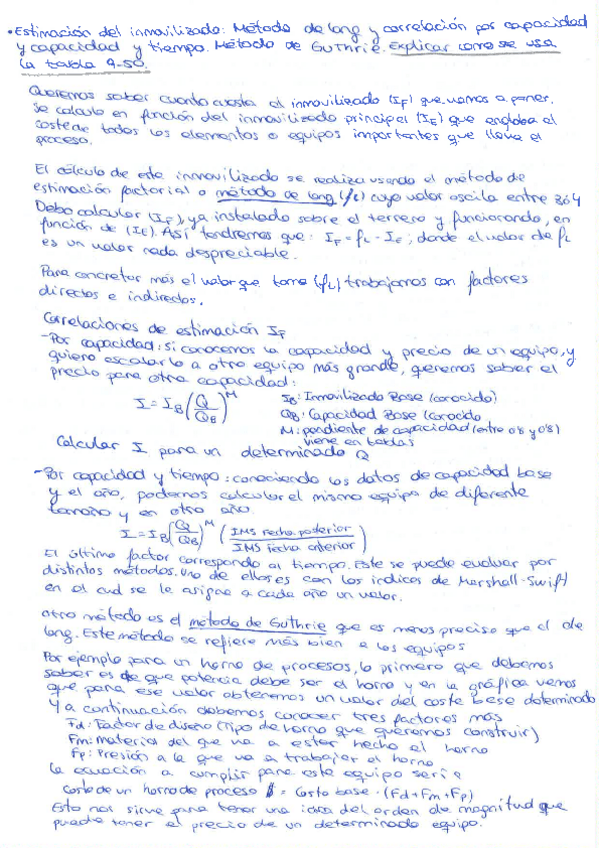 • Estimación del inmovilizado: Método de long y correlación por capacidad
y capacidad y tiempo. Método de Guthrie. Explicar como se usa
la tabla 9-50.
Queremos saber cuanto cuesta el inmovilizado (IF) que vamos a poner.
Se calcula en función del inmovilizado principal (IE) que engloba el
coste de todos los elementos o equipos importantes que lleva el
proceso.
El cálculo de este inmovilizado se realiza usando el método de
estimación factorial o método de long (fL) cuyo valor oscila entre 3 a 4
Debo calcular (IF), ya instalado sobre el terreno y funcionando, en
función de (IE). Así tendremos que: IF = fL · IE; donde el valor de fL
es un valor nada despreciable.
Para concretar más el valor que tome (fL) trabajamos con factores
directos e indirectos.
Correlaciones de estimación IF
- Por capacidad: si conocemos la capacidad y precio de un equipo, y
quiero escalarlo a otro equipo más grande, queremos saber el
precio para otra capacidad:
I = IB (Q/QB)^M
IB: Inmovilizado Base (conocido)
QB: Capacidad Base (conocido
M: pendiente de capacidad (entre 0'5 y 0'8)
viene en tablas
Calcular I para un determinado Q
- Por capacidad y tiempo: conociendo los datos de capacidad base
y el año, podemos calcular el mismo equipo de diferente
tamaño y en otro año.
I = IB (Q/QB)^M (IMS fecha posterior / IMS fecha anterior)
El último factor corresponde al tiempo. Este se puede evaluar por
distintos métodos. Uno de ellos es con los indices de Marshall-Swift
en el cual se le asigna a cada año un valor.
otro método es el método de Guthrie que es menos preciso que el de
long. Este método se refiere más bien a los equipos
Por ejemplo para un horno de procesos, lo primero que debemos
saber es de que potencia debe ser el horno y en la gráfica vemos
que para ese valor obtenemos un valor del coste base determinado
Y a continuación debemos conocer tres factores más
Fd: Factor de diseño (Tipo de horno que queremos construir)
Fm: material del que va a estar hecho el horno
Fp: Presión a la que va a trabajar el horno
La ecuación a cumplir para este equipo seria
Coste de un horno de proceso = Costo base · (Fd + Fm + Fp)
Esto nos sirve para tener una idea del orden de magnitud que
puede tener el precio de un determinado equipo.